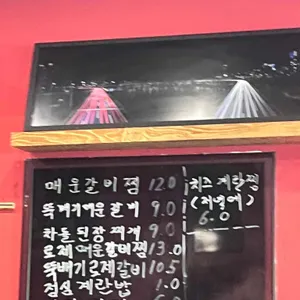 매운갈비찜 12.0
뚝배기매운갈비 9.0
차돌된장찌개 9.0
로제매운갈비찜 13.0
뚝배기로제갈비 10.5
점심계란밥 1.0
치즈계란찜
(저녁에)
6.0